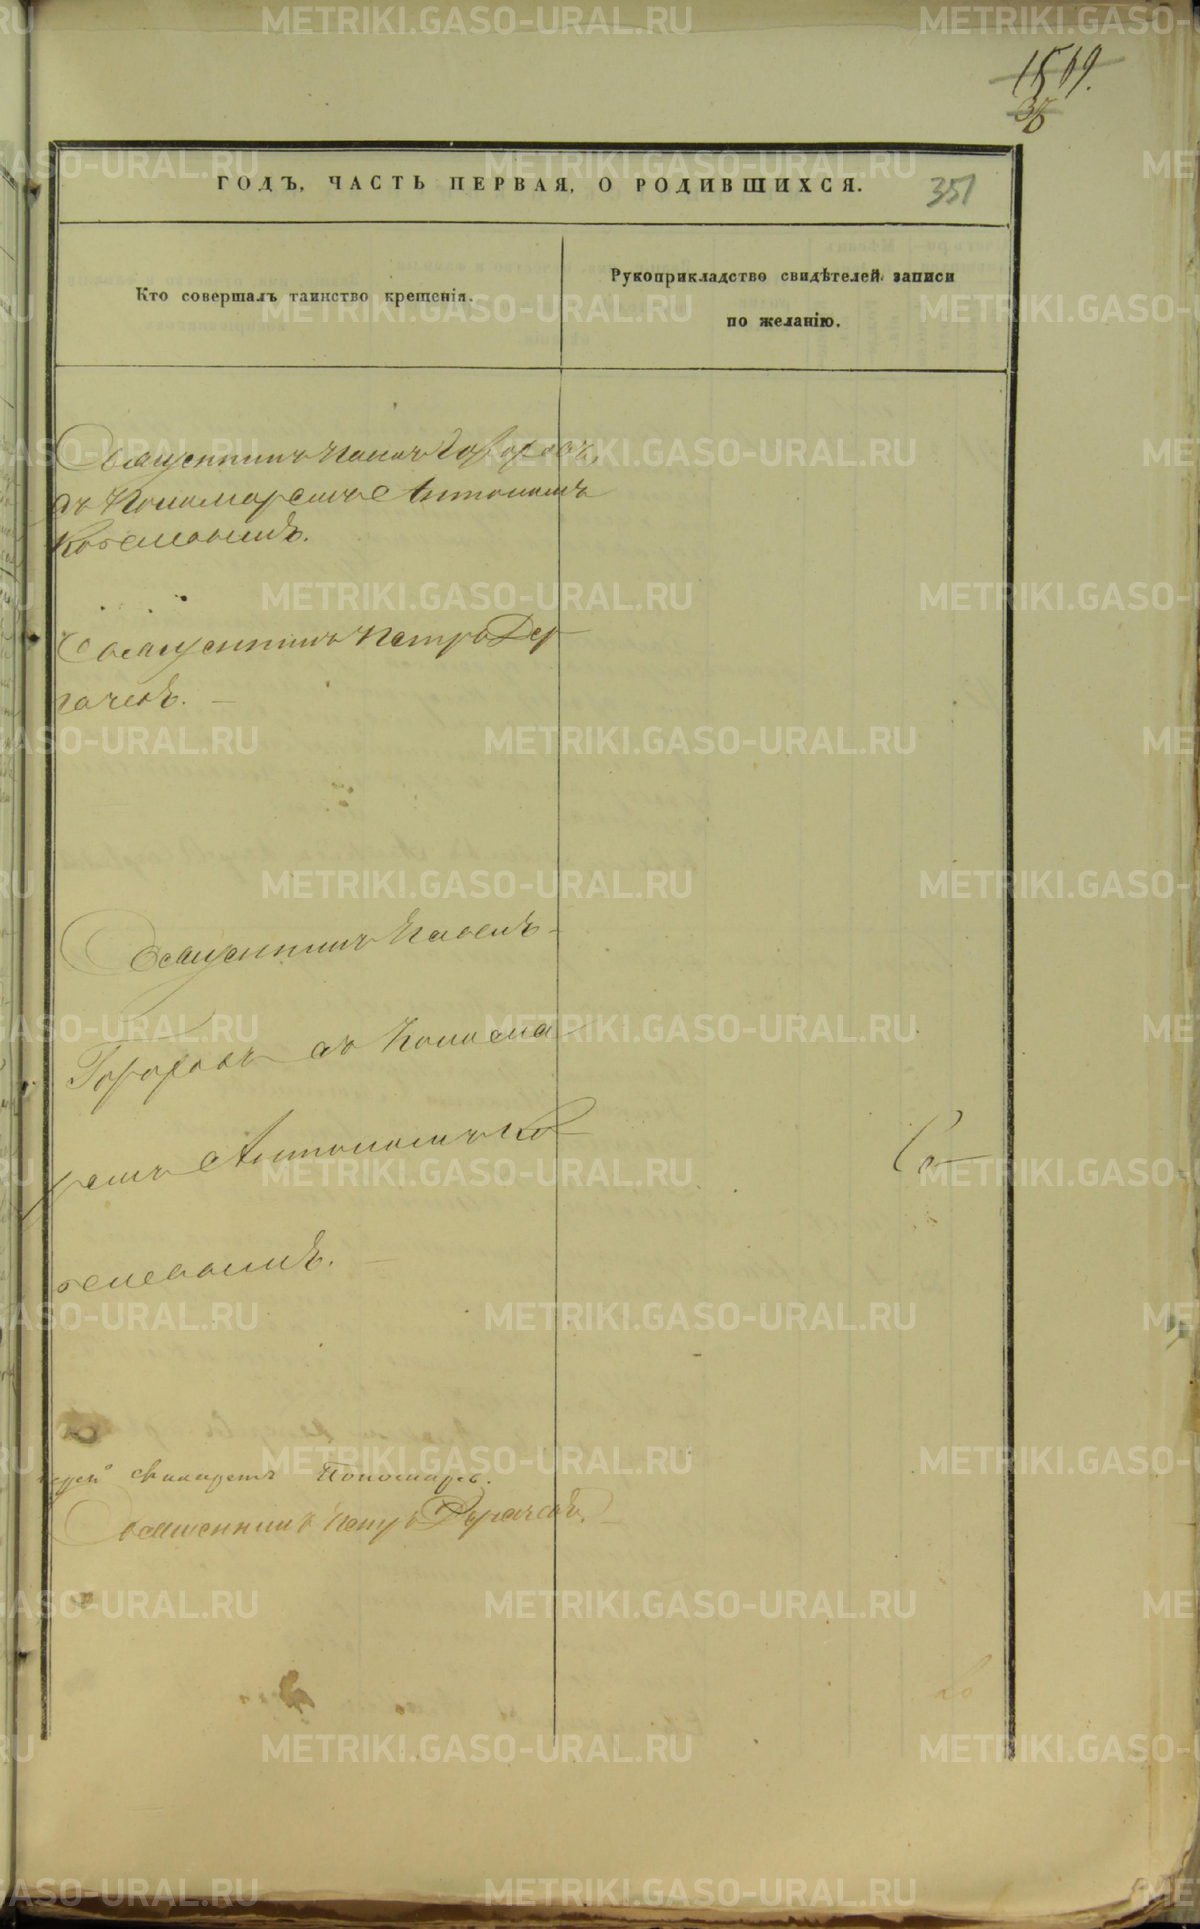 1569.
36
ГОДЪ, ЧАСТЬ ПЕРВАЯ, О РОДИВШИХСЯ.
351
Кто совершалъ таинство крещенія.
Рукоприкладство свидѣтелей записи
по желанію.
Священникъ Павелъ
съ Пономаремъ Антономъ
Котелевымъ.
Священникъ Петръ Дер
гачевъ.
Священникъ Павелъ
съ Понома
ремъ Антономъ Ко
телевымъ.
Пономарев.
Священникъ Петръ Дергачевъ.
METRIKI.GASO-URAL.RU